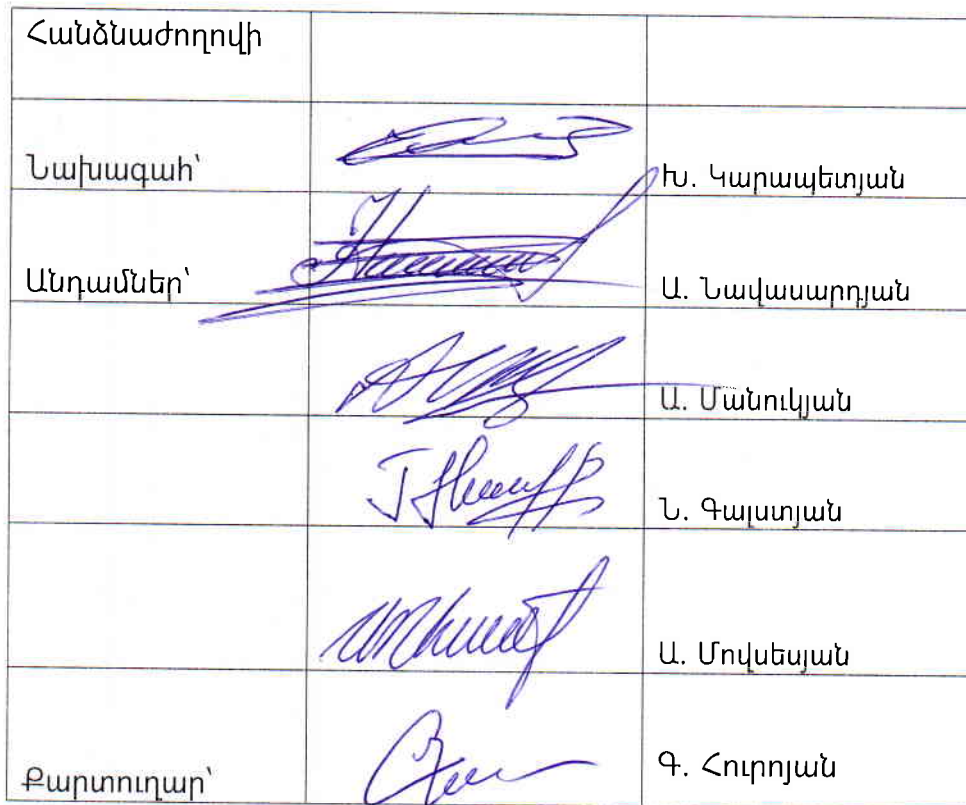 Հանձնաժողովի
Նախագահ՝ Խ. Կարապետյան
Անդամներ՝ Ա. Նավասարդյան
Ա. Մանուկյան
Ն. Գալստյան
Ա. Մովսեսյան
Քարտուղար՝ Գ. Հուրոյան